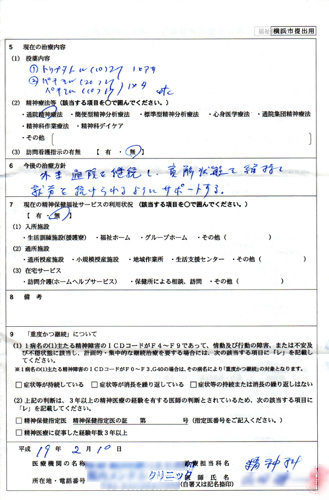 福祉 横浜市提出用
5 現在の治療内容
(1) 投薬内容
(10)
(2) 精神療法等(該当する項目を○で囲んでください。)
・通院精神療法 ・簡便型精神分析療法 ・標準型精神分析療法 ・心身医学療法 ・通院集団精神療法
・精神科作業療法 ・精神科デイケア
・その他
(3) 訪問看護指示の有無 【 有 ・ 無 】
6 今後の治療方針
通院を継続し、寛解状態を維持し
就労を続けられるようにサポートする。
7 現在の精神保健福祉サービスの利用状況(該当する項目を○で囲んでください。)
【 有 ・ 無 】
(1) 入所施設
・生活訓練施設(援護寮) ・福祉ホーム ・グループホーム ・その他( )
(2) 通所施設
・通所授産施設 ・小規模授産施設 ・地域作業所 ・生活支援センター ・その他( )
(3) 在宅サービス
・訪問介護(ホームヘルプサービス) ・保健所による相談、訪問 ・その他( )
8 備 考
9 「重度かつ継続」について
(1) 1病名の(1)主たる精神障害のICDコードがF4~F9であって、情動及び行動の障害、または不安及び不穏状態に該当し、計画的・集中的な継続治療を要する場合には、次の該当する項目に「レ」を記載してください。
※1病名の(1)主たる精神障害のICDコードがF0~F3,G40の場合は、その病名により「重度かつ継続」の対象となります。
□ 症状等が持続している □ 症状等が消長を繰り返している □ 症状等の持続または消長の繰り返しはない
(2) 上記の判断は、3年以上の精神医療の経験を有する医師の判断とされているため、次の該当する項目に「レ」を記載してください。
□ 精神保健指定医 精神保健指定医の証 第 号 (指定医番号をご記入ください。)
□ 精神医療に従事した経験年数3年以上
平成 19 年 2 月 10 日
医療機関の名称 クリニック 診療担当科名 精神科
所在地・電話番号 医師氏名
(自署又は記名捺印)